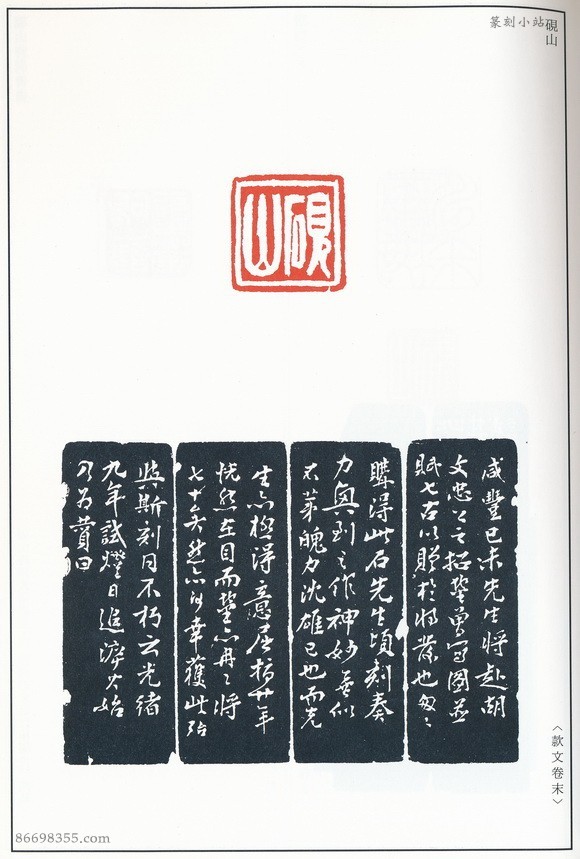 篆刻小站
硯山
硯山
咸豐己未先生將赴胡
文忠公之招鋆曾寫圖並
賦七古以贈於將發也匆〻
購得此石先生頃刻奏
刀興到之作神妙無似
不第魄力沈雄已也而先
生亦極得意屈指廿年
恍然在目而鋆亦冉〻將
七十矣然亦何幸獲此殆
與斯刻同不朽云光緒
九年試燈日追溯始
乃為贊曰
〈款文卷末〉
86698355.com